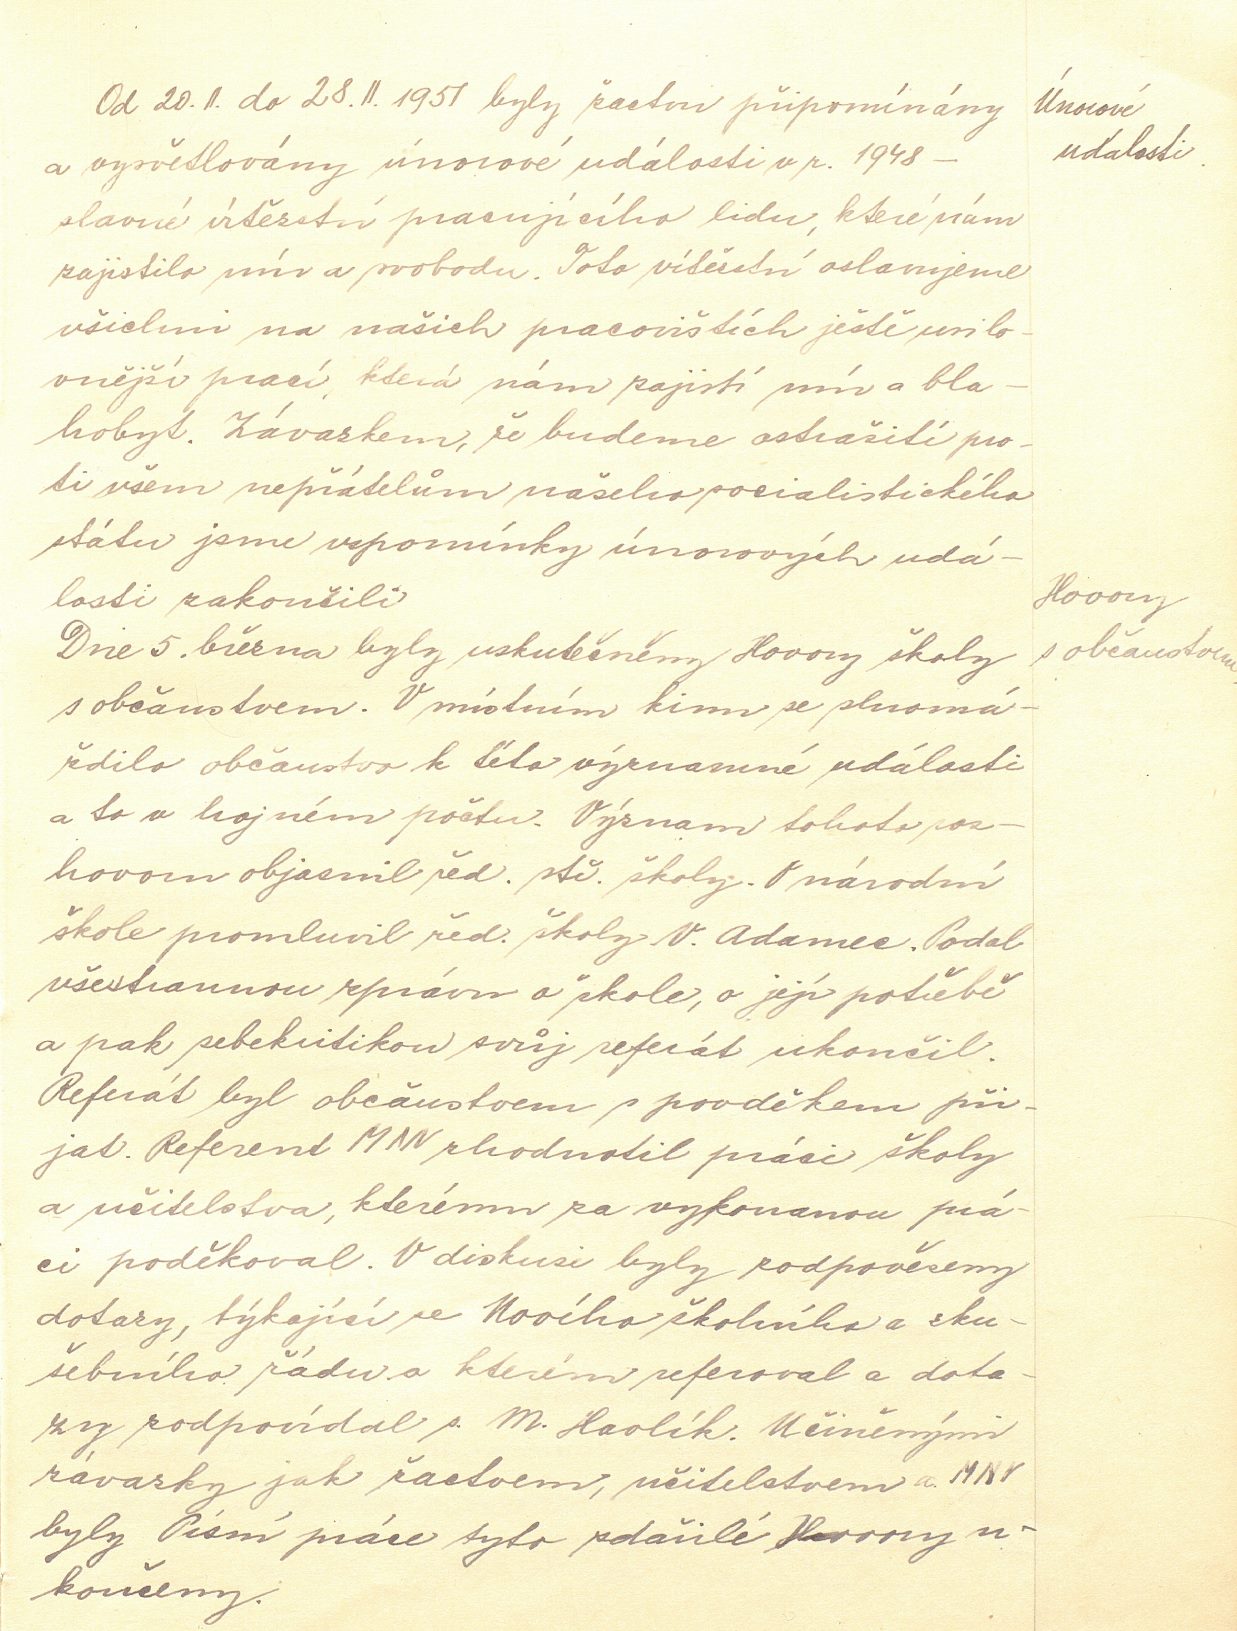 Od 20.II. do 28.II. 1951 byly žactvu připomínány
a vysvětlovány únorové události v r. 1948 –
slavné vítězství pracujícího lidu, které nám
zajistilo mír a svobodu. Toto vítězství oslavujeme
všichni na našich pracovištích ještě usilo-
vnější prací, která nám zajistí mír a bla-
hobyt. Závazkem, že budeme ostražití pro-
ti všem nepřátelům našeho socialistického
státu jsme vzpomínky únorových udá-
losti zakončili
Dne 5. března byly uskutečněny Hovory školy
s občanstvem. V místním kinu se shromá-
ždilo občanstvo k této významné události
a to v hojném počtu. Význam tohoto roz-
hovoru objasnil řed. stř. školy. V národní
škole promluvil řed. školy V. Adamec. Podal
všestrannou zprávu o škole, o její potřebě
a pak sebekritikou svůj referát ukončil.
Referát byl občanstvem s povděkem při-
jat. Referent MNV zhodnotil práci školy
a učitelstva, kterému za vykonanou prá-
ci poděkoval. V diskusi byly zodpověseny
dotazy, týkající se Nového školního a zku-
šebního řádu o kterém referoval a dota-
zy zodpovídal s. M. Havlík. Učiněnými
závazky jak žactvem, učitelstvem a MNV
byly Písní práce tyto zdařilé Hovory u-
končeny.
Únorové
události
Hovory
s občanstvem